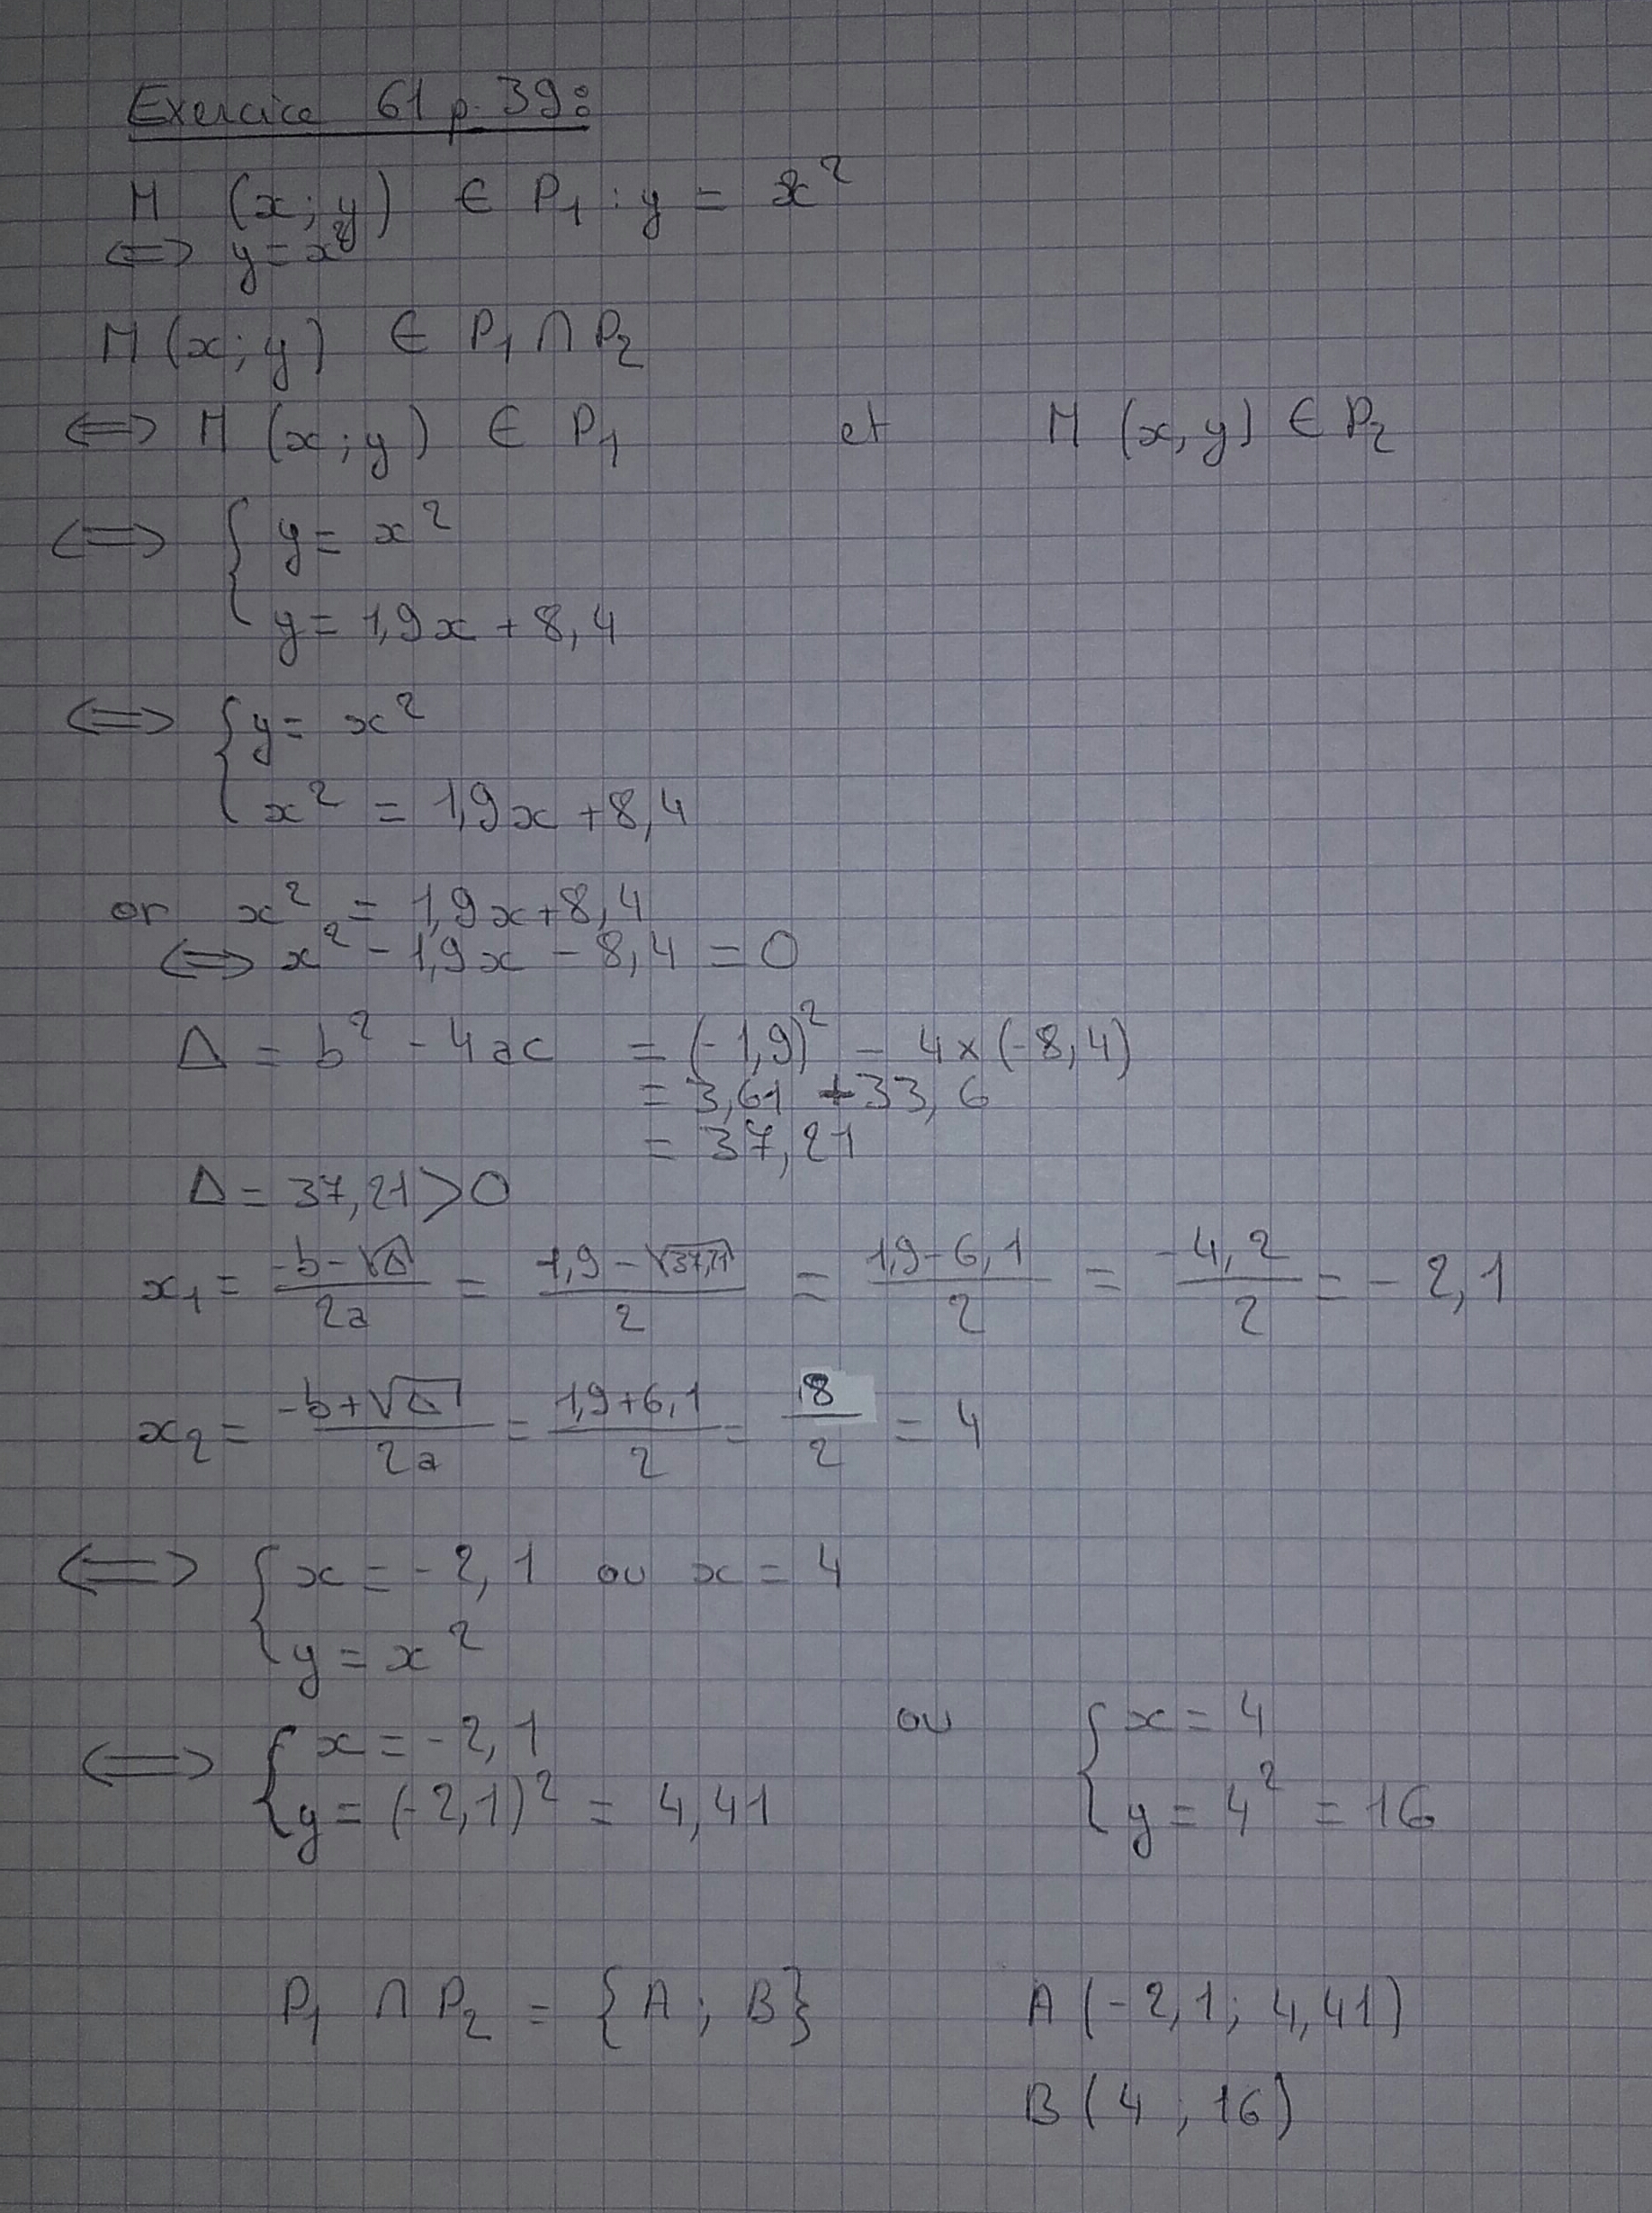 Exercice 61 p. 39:
M (x; y) ∈ P₁ : y = x²
⇔ y = x²
M (x; y) ∈ P₁ ∩ P₂
⇔ M (x; y) ∈ P₁ et M (x, y) ∈ P₂
⇔ { y = x²
y = 1,9x + 8,4
⇔ { y = x²
x² = 1,9x + 8,4
or x² = 1,9x + 8,4
⇔ x² - 1,9x - 8,4 = 0
Δ = b² - 4ac = (-1,9)² - 4 × (-8,4)
= 3,61 + 33,6
= 37,21
Δ = 37,21 > 0
x₁ = (-b - √Δ)/2a = (1,9 - √37,21)/2 = (1,9 - 6,1)/2 = -4,2/2 = -2,1
x₂ = (-b + √Δ)/2a = (1,9 + 6,1)/2 = 8/2 = 4
⇔ { x = -2,1 ou x = 4
y = x²
⇔ { x = -2,1 ou { x = 4
y = (-2,1)² = 4,41 y = 4² = 16
P₁ ∩ P₂ = {A; B} A (-2,1; 4,41)
B (4; 16)